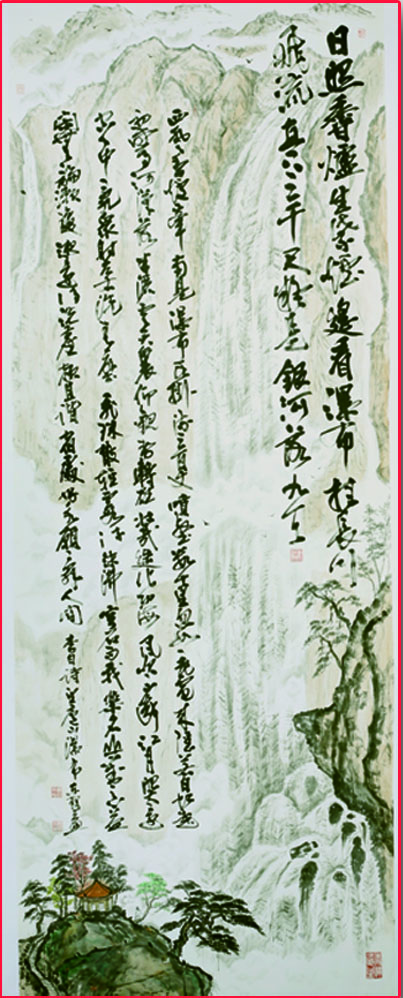 日照香爐生紫煙遙看瀑布挂長川
飛流直下三千尺疑是銀河落九天
西登香爐峰南見瀑布水挂流三百丈噴壑數十里欻如飛電來隱若白虹起
初驚河漢落半灑雲天裏仰觀勢轉雄壯哉造化功海風吹不斷江月照還
空空中亂潨射左右洗青壁飛珠散輕霞流沫沸穹石而我樂名山對之心益
閑無論漱瓊液還得洗塵顏且諧宿所好永願辭人間 李白詩望廬山瀑布